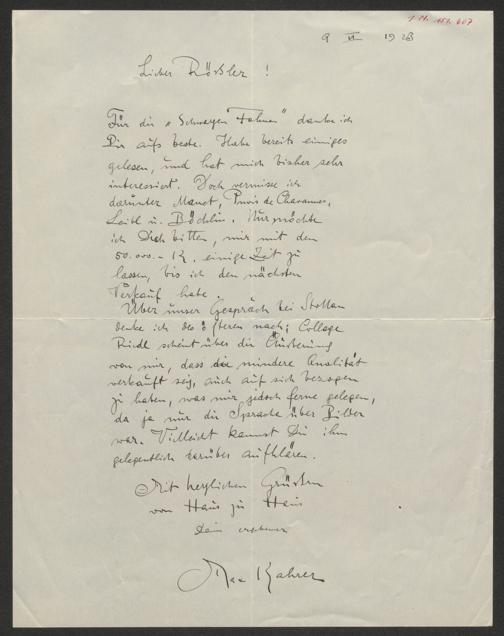 9 VI 1923
Lieber Rößler!
Für die "Schwarzen Fahnen" danke ich
Dir aufs beste. Habe bereits einiges
gelesen, und hat mich bisher sehr
interessiert. Doch vermisse ich
darunter Manet, Puvis de Chavannes,
Leibl u. Böcklin. Nur möchte
ich Dich bitten, mir mit den
50.000.- K. einige Zeit zu
lassen, bis ich den nächsten
Verkauf habe.
Über unser Gespräch bei
denke ich des öfteren nach; College
Riedl scheint über die Äußerung
von mir, dass die mindere Qualität
verkauft sei, auch auf sich bezogen
zu haben, was mir jedoch ferne gelegen,
da ja nur die Sprache über Bilder
war. Vielleicht kannst Du ihn
gelegentlich darüber aufklären.
Mit herzlichen Grüßen
von Haus zu Haus
Dein ergebener
Max Kahrer